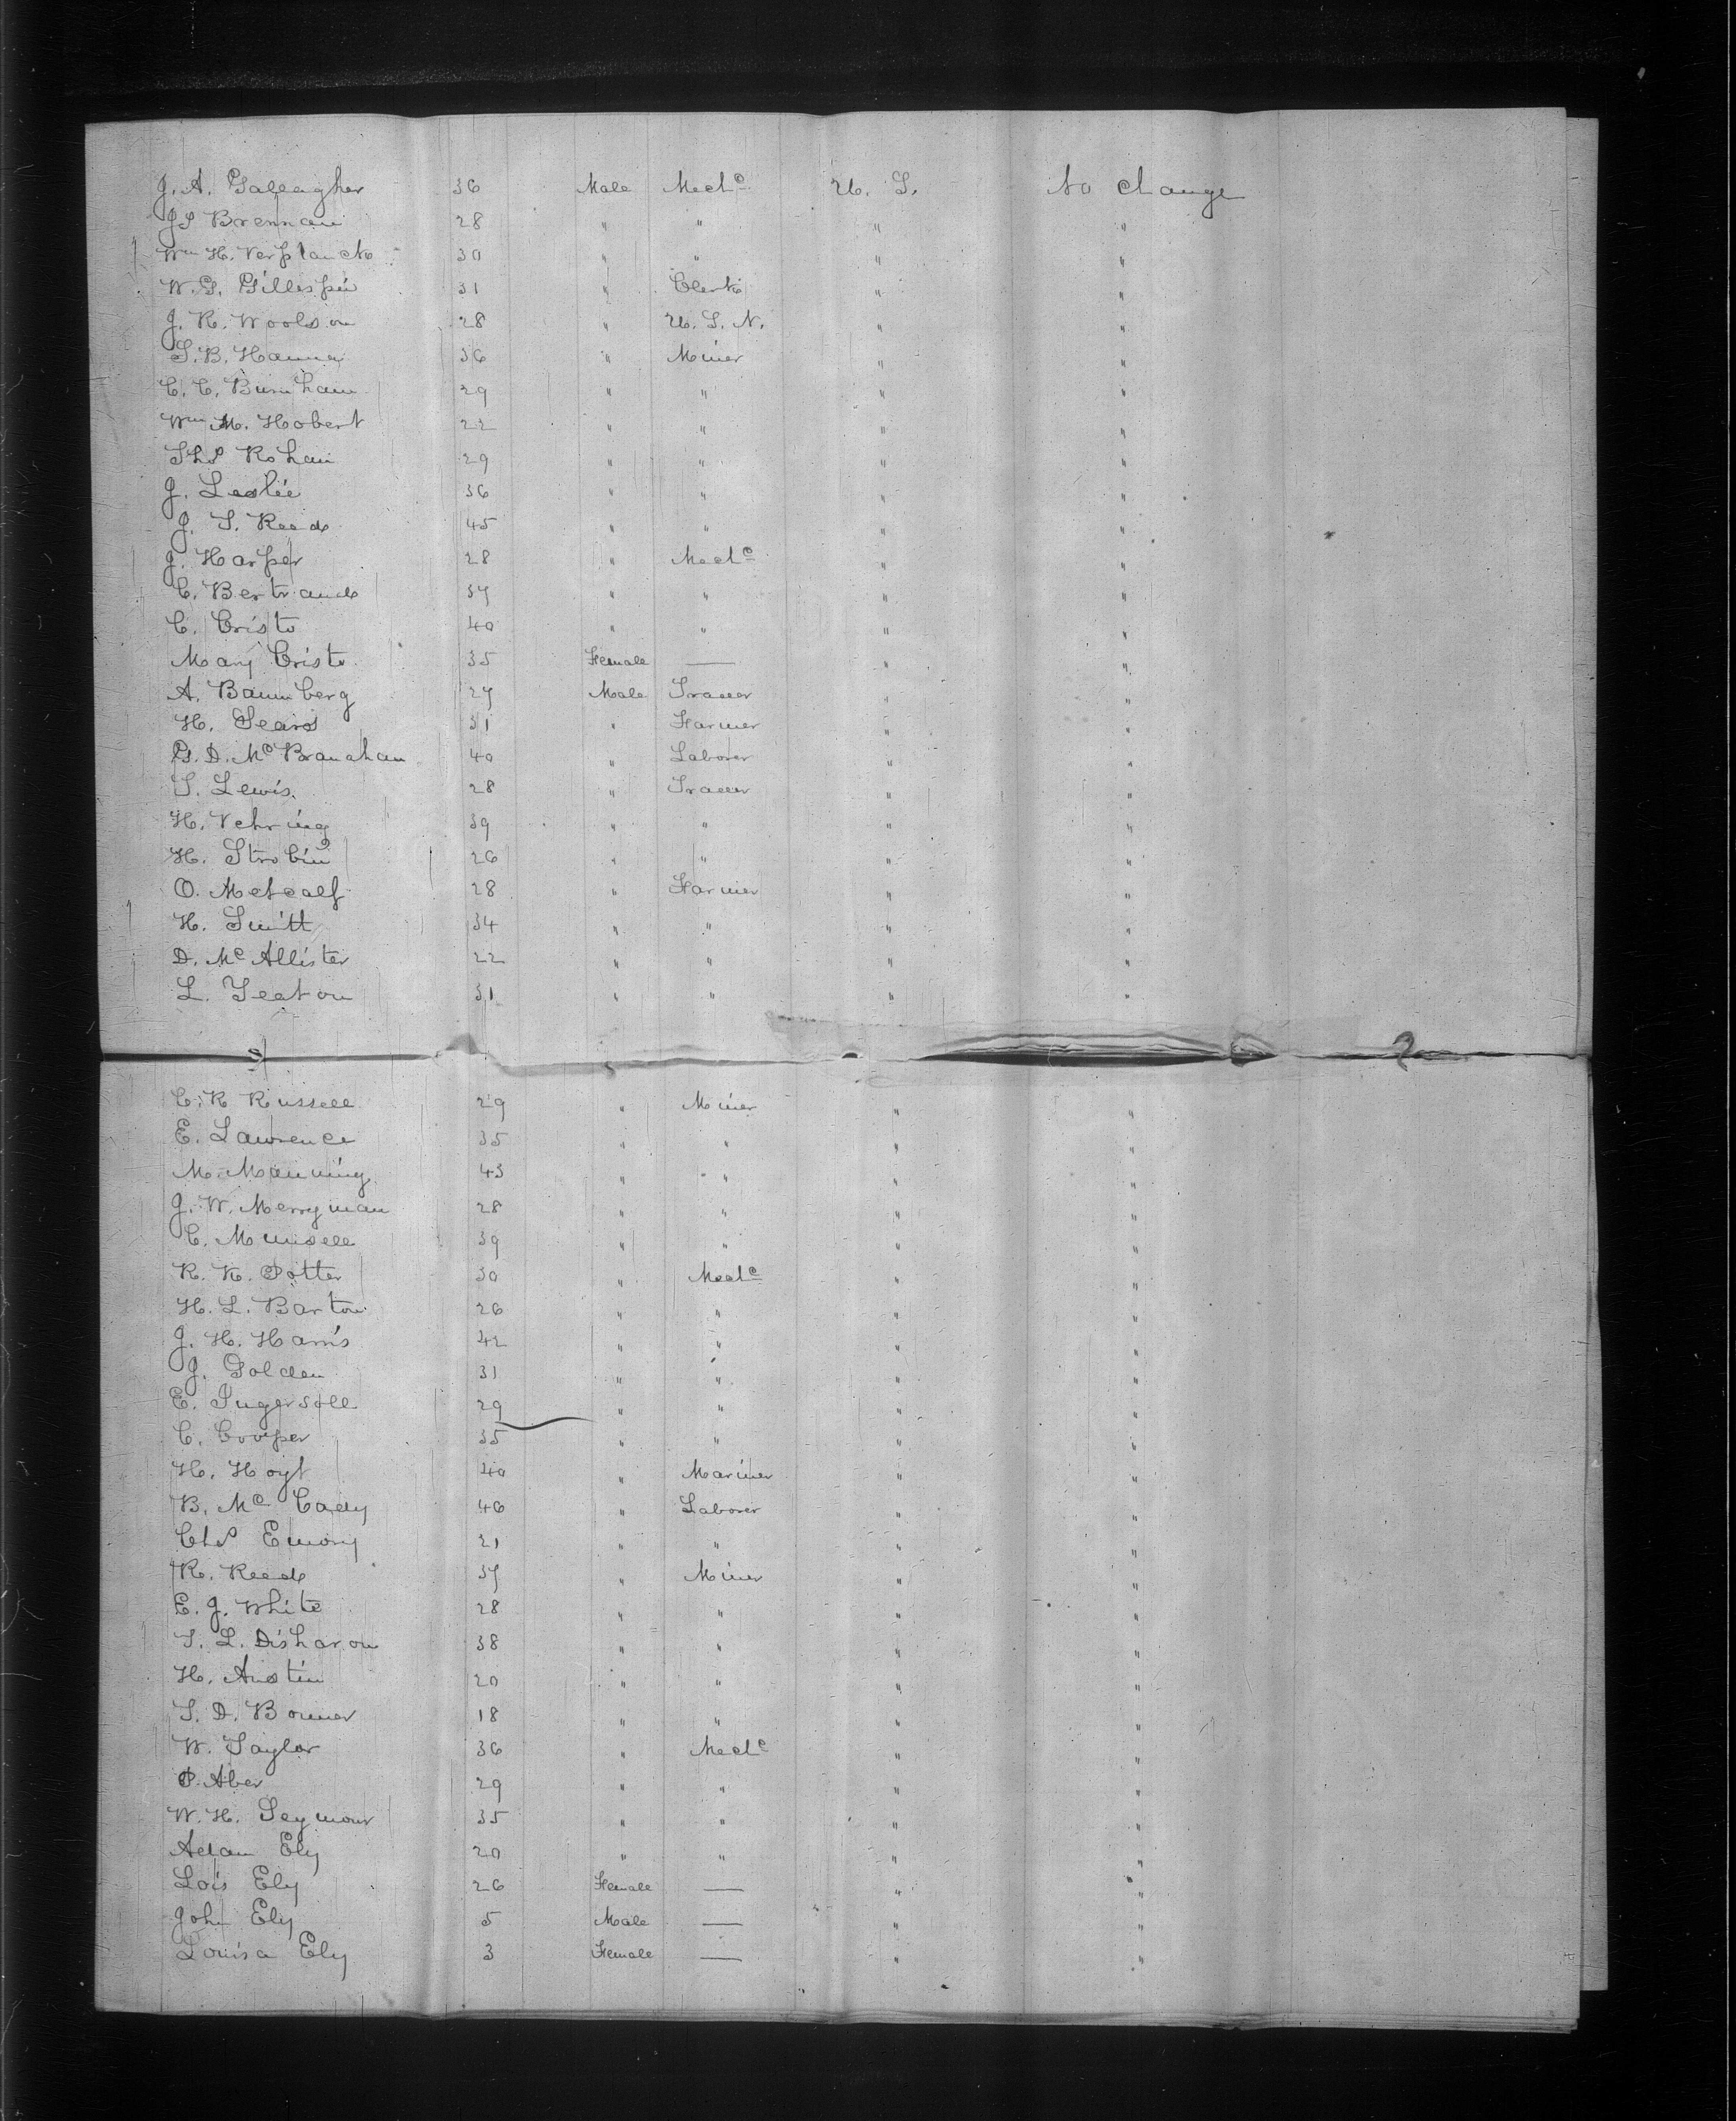 J. A. Gallagher 36 Male Mechc U. S. No change
J S Brennan 28 " " " "
Wm H. Verplancke 30 " " " "
W. G. Gillispie 31 " Clerk " "
J. R. Woolson 28 " U. S. N. " "
S. B. Hanna 36 " Miner " "
C. C. Burnham 29 " " " "
Wm M. Hobert 22 " " " "
Ths Rohan 29 " " " "
J. Leslie 36 " " " "
J. S. Reed 45 " " " "
J. Harper 28 " Mechc " "
C. Bertrand 37 " " " "
C. Cristo 40 " " " "
Mary Cristo 35 Female — " "
A. Baumberg 27 Male Trader " "
H. Sears 31 " Farmer " "
G. D. McBranahan 40 " Laborer " "
S. Lewis. 28 " Trader " "
H. Vehring 39 " " " "
H. Strobin 26 " " " "
O. Metcalf 28 " Farmer " "
H. Smith 34 " " " "
D. McAllister 22 " " " "
L. Seaton 31 " " " "
C. R Russell 29 " Miner " "
E. Lawrence 35 " " " "
M. Manning 43 " " " "
J. W. Merryman 28 " " " "
C. Munsell 39 " " " "
R. K. Potter 30 " Mechc " "
H. L. Barton 26 " " " "
J. H. Harris 42 " " " "
J. Golden 31 " " " "
E. Ingersoll 29 " " " "
C. Cooper 35 " " " "
H. Hoyt 40 " Mariner " "
B. Mc Cady 46 " Laborer " "
Chs Emory 21 " " " "
R. Reed 37 " Miner " "
E. J. White 28 " " " "
T. L. Disharon 38 " " " "
H. Austin 20 " " " "
S. D. Bonner 18 " " " "
W. Taylor 36 " Mechc " "
P. Aber 29 " " " "
W. H. Seymour 35 " " " "
Adam Ely 20 " " " "
Lois Ely 26 Female — " "
John Ely 5 Male — " "
Louisa Ely 3 Female — " "